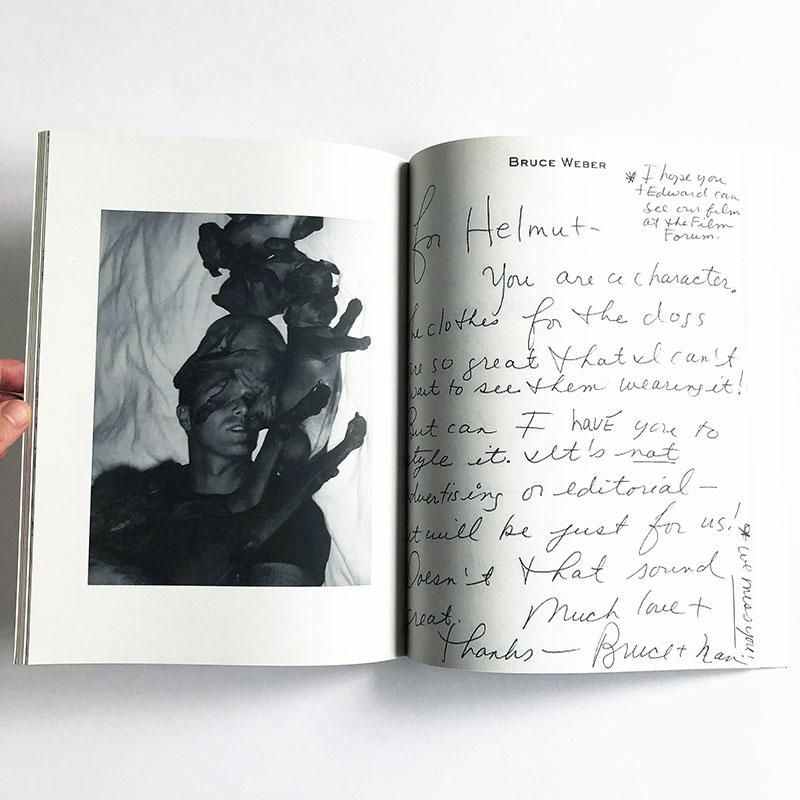 BRUCE WEBER
* I hope you
+ Edward can
see our film
at the Film
Forum.
for Helmut -
You are a character.
he clothes for the dogs
are so great that I can't
wait to see them wearing it!
But can I HAVE you to
style it. It's not
advertising or editorial —
it will be just for us!
Doesn't that sound
great. Much love +
Thanks — Bruce + Nan
* we miss you!